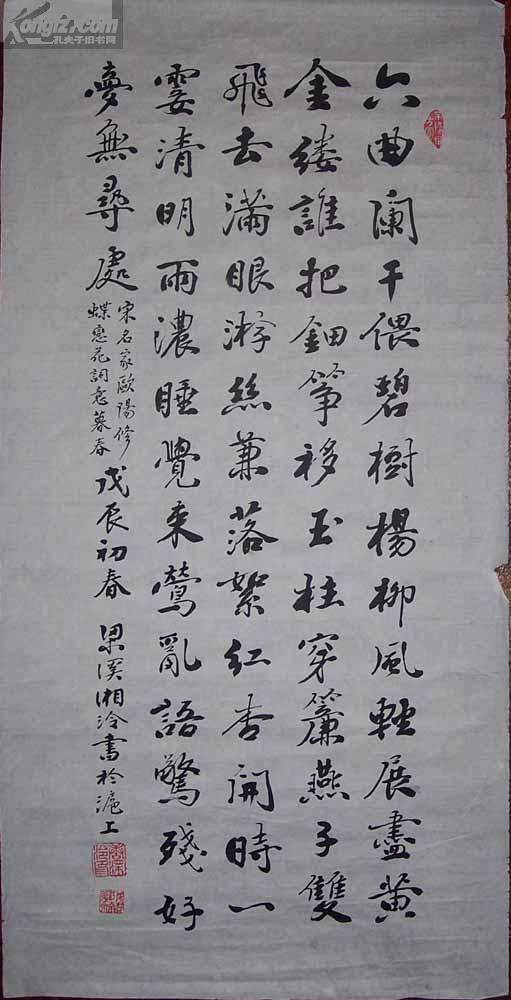 六曲闌干偎碧樹楊柳風輕展盡黄
金縷誰把鈿箏移玉柱穿簾燕子雙
飛去滿眼游絲兼落絮紅杏開時一
霎清明雨濃睡覺來鶯亂語驚殘好
夢無尋處
宋名家歐陽修
蝶恋花詞意暮春
戊辰初春 梁溪湘泠書於滬上
Kongfz.com
孔夫子旧书网